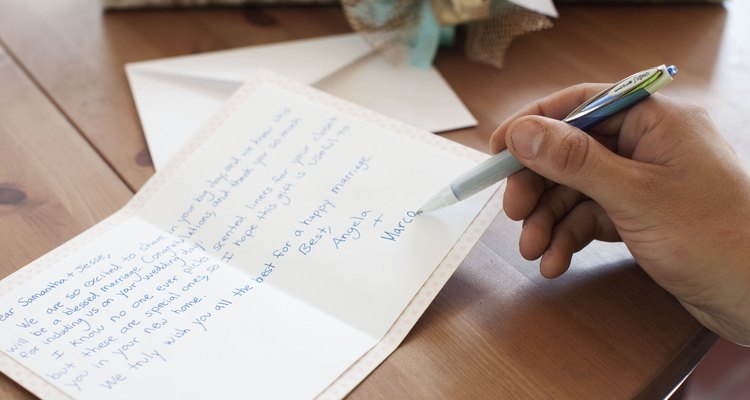 ear Samantha + Jesse,
We are so excited to share in your big day, and we know this
will be a blessed marriage. Congratulations, and thank you so much
for including us on your wedding day.
I know no one ever picks scented liners for your closet
but these are special ones, so I hope this gift is useful to
you in your new home.
We truly wish you all the best for a happy marriage
Best,
Angela
+
Marco
SIGNO